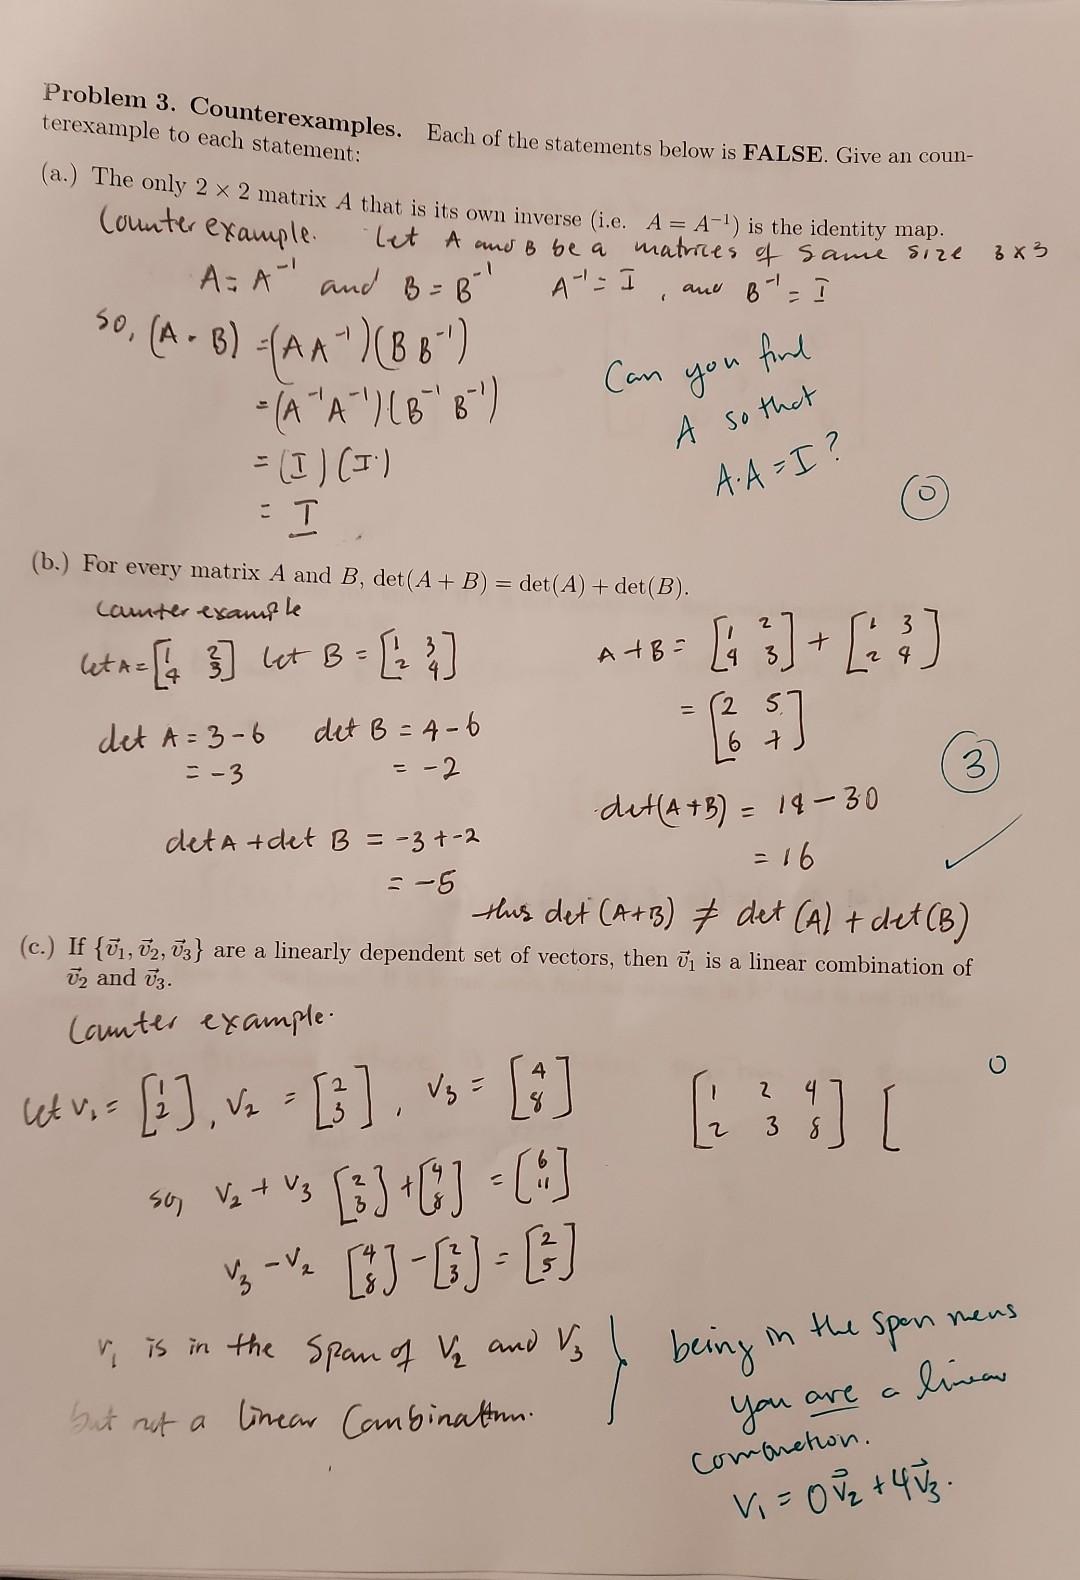 Problem 3. Counterexamples. Each of the statements below is FALSE. Give an coun-
terexample to each statement:
(a.) The only 2 × 2 matrix A that is its own inverse (i.e. A = A⁻¹) is the identity map.
Counter example. Let A and B be a matrices of same size 3×3
A = A⁻¹ and B = B⁻¹ A⁻¹ = I, and B⁻¹ = I
so, (A · B) = (AA⁻¹)(BB⁻¹)
= (A⁻¹A⁻¹)(B⁻¹B⁻¹)
= (I)(I)
= I
Can you find
A so that
A·A = I?
0
(b.) For every matrix A and B, det(A + B) = det(A) + det(B).
Counter example
let A = [1 2; 4 3] let B = [1 3; 2 4]
det A = 3 - 6 det B = 4 - 6
= -3 = -2
det A + det B = -3 + -2
= -5
A + B = [1 2; 4 3] + [1 3; 2 4]
= [2 5; 6 7]
3
det(A+B) = 14 - 30
= 16
thus det (A+B) ≠ det (A) + det (B)
(c.) If {v⃗₁, v⃗₂, v⃗₃} are a linearly dependent set of vectors, then v⃗₁ is a linear combination of
v⃗₂ and v⃗₃.
Counter example.
0
let v₁ = [1; 2], v₂ = [2; 3], v₃ = [4; 8]
[1 2 4; 2 3 8] [
so, v₂ + v₃ [2; 3] + [4; 8] = [6; 11]
v₃ - v₂ [4; 8] - [2; 3] = [2; 5]
v₁ is in the span of v₂ and v₃
but not a linear Combination.
being in the span mens
you are a linear
v₁ = 0v⃗₂ + 4v⃗₃.